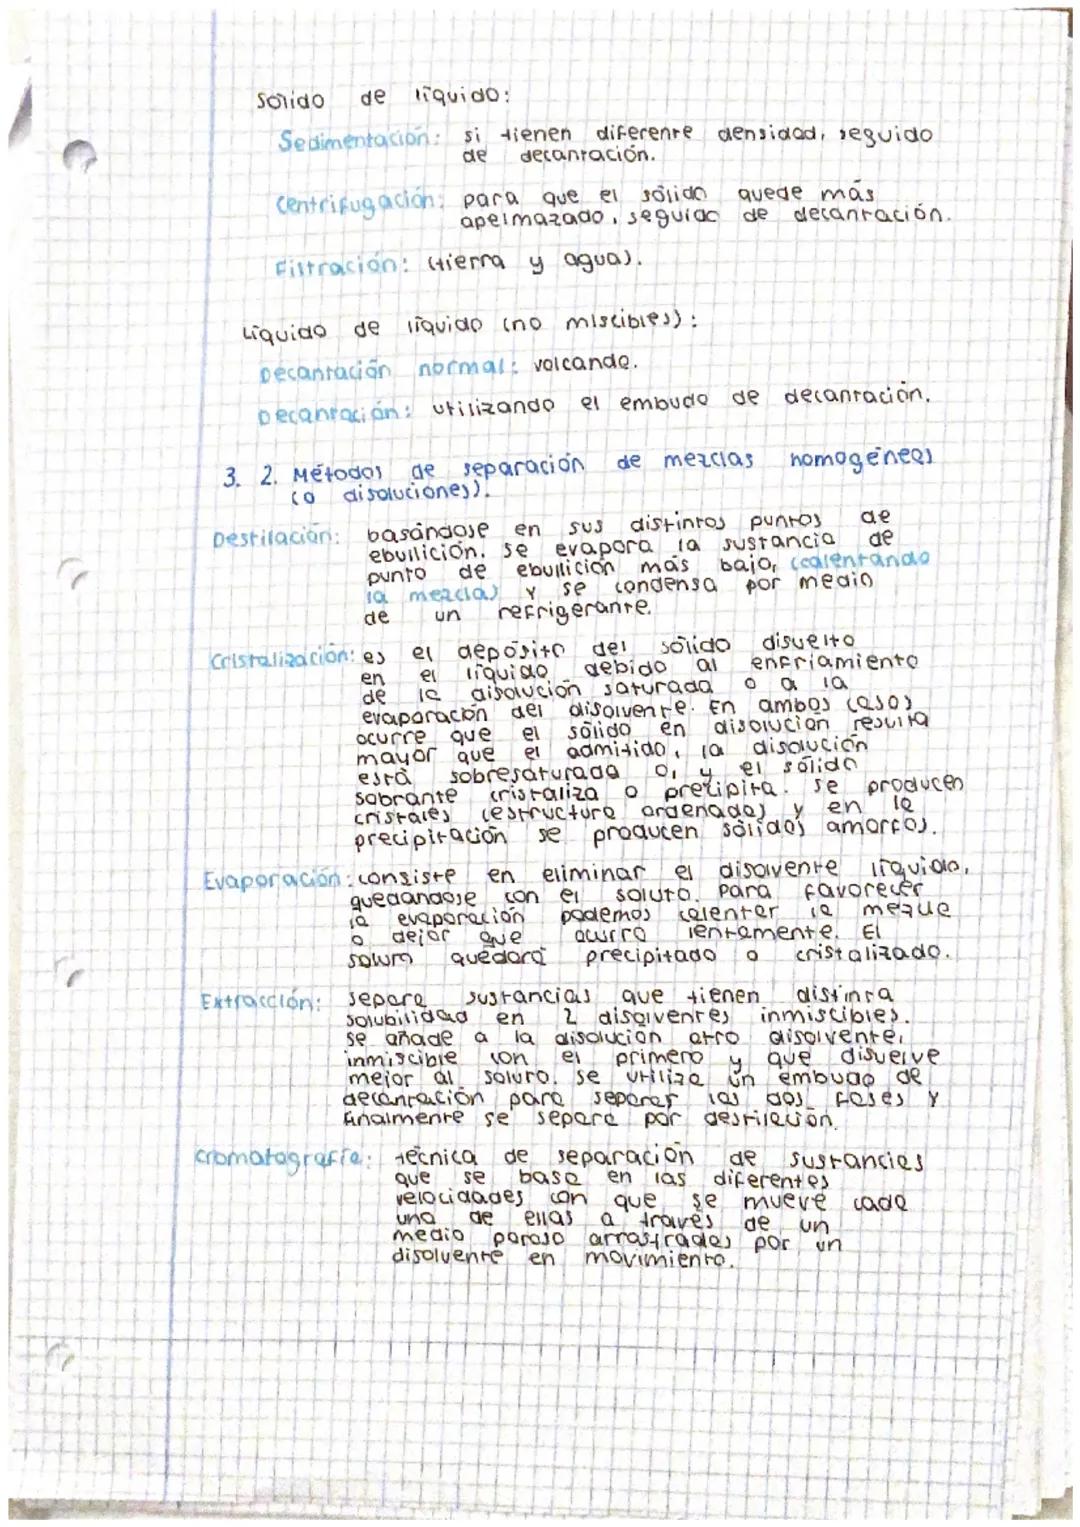 Sólido de líquido:
Sedimentación: si tienen diferente densidad, seguido
de decantación.
Centrifugación: para que el sólido quede más
apelmazado, seguido de decantación.
Filtración: (tierra y agua).
Líquido de líquido (no miscibles):
Decantación normal: volcando.
Decantación: utilizando el embudo de decantación.
3. 2. Métodos de separación de mezclas homogéneas
(o disoluciones).
Destilación: basándose en sus distintos puntos de
ebullición. Se evapora la sustancia de
punto de ebullición más bajo, (calentando
la mezcla) y se condensa por medio
de un refrigerante.
Cristalización: es el depósito del sólido disuelto
en el líquido debido al enfriamiento
de la disolución saturada o a la
evaporación del disolvente. En ambos casos
ocurre que el sólido en disolución resulta
mayor que el admitido, la disolución
está sobresaturada o, y el sólido
sobrante cristaliza o precipita. Se producen
cristales (estructura ordenada) y en la
precipitación se producen sólidos amorfos.
Evaporación: consiste en eliminar el disolvente líquido,
quedándose con el soluto. Para favorecer
la evaporación podemos calentar la
o dejar que ocurra lentamente. El
soluto quedará precipitado o cristalizado.
Extracción: separa sustancias que tienen distinta
solubilidad en 2 disolventes inmiscibles.
se añade a la disolución otro disolvente,
inmiscible con el primero y que disuelve
mejor al soluto. Se utiliza un embudo de
decantación para separar las dos fases y
finalmente se separa por destilación.
Cromatografía: técnica de separación de sustancias
que se basa en las diferentes
velocidades con que se mueve cada
una de ellas a través de un
medio poroso arrastradas por un
disolvente en movimiento.